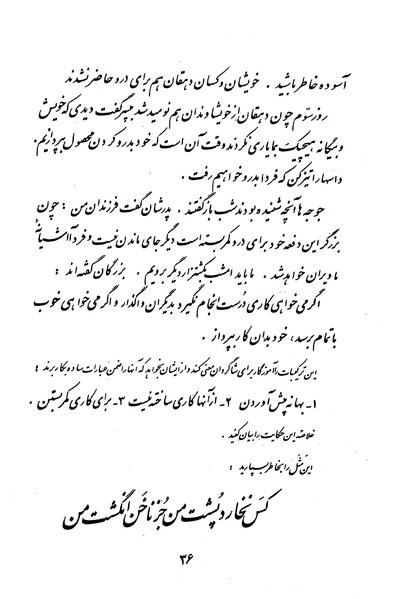 آسوده خاطر باشید . خویشان و کسان دهقان هم برای درو حاضر نشدند
روز سوّم چون دهقان از خویشاوندان هم نومید شد بپسر گفت دیدی که خویش
و بیگانه هیچیک بما یاری نکردند وقت آن است که خود بدرو کردن محصول بپردازیم.
داسها را تیز کن که فردا بدرو خواهیم رفت .
جوجه ها آنچه شنیده بودند شب باز گفتند . پدرشان گفت فرزندان من : چون
برزگر این دفعه خود برای درو کمر بسته است دیگر جای ماندن نیست و فردا آشیانهٔ
ما ویران خواهد شد . ما باید امشب بکشتزار دیگر برویم . بزرگان گفته اند :
اگر می خواهی کاری درست انجام نگیرد بدیگران واگذار و اگر می خواهی خوب
باتمام برسد، خود بدان کار بپرداز .
این ترکیبات را آموزگار برای شاگردان معنی کند و از ایشان بخواهد که آنها را ضمن عبارات ساده بکار برند :
۱- بهانه پیش آوردن ۲- از آنها کاری ساخته نیست ۳- برای کاری کمر بستن .
خلاصه این حکایت را بیان کنید .
این مَثَل را بخاطر بسپارید :
کس نخارد پُشت من جُز ناخن انگشت من
۳۶